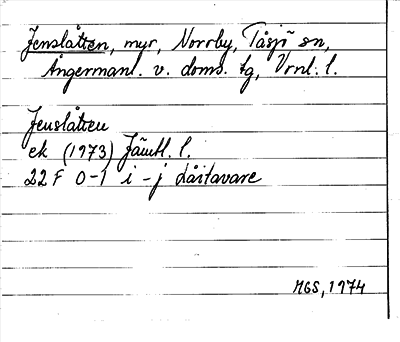 Jenslåtten, myr, Norrby, Tåsjö sn,
Ångermanl. v. doms. tg, Vrnl. l.
Jenslåtten
ek (1973) Jämtl. l.
22F 0-1 i-j Låitavare
MGS, 1974